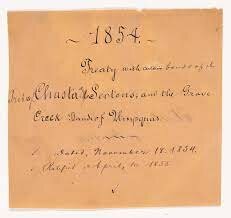 ~ 1854. ~
Treaty with certain bands of the
Chasta & Scotons, and the Grave
Creek Band of Umpquas.
Dated, November 18. 1854.
Ratified April 10. 1855